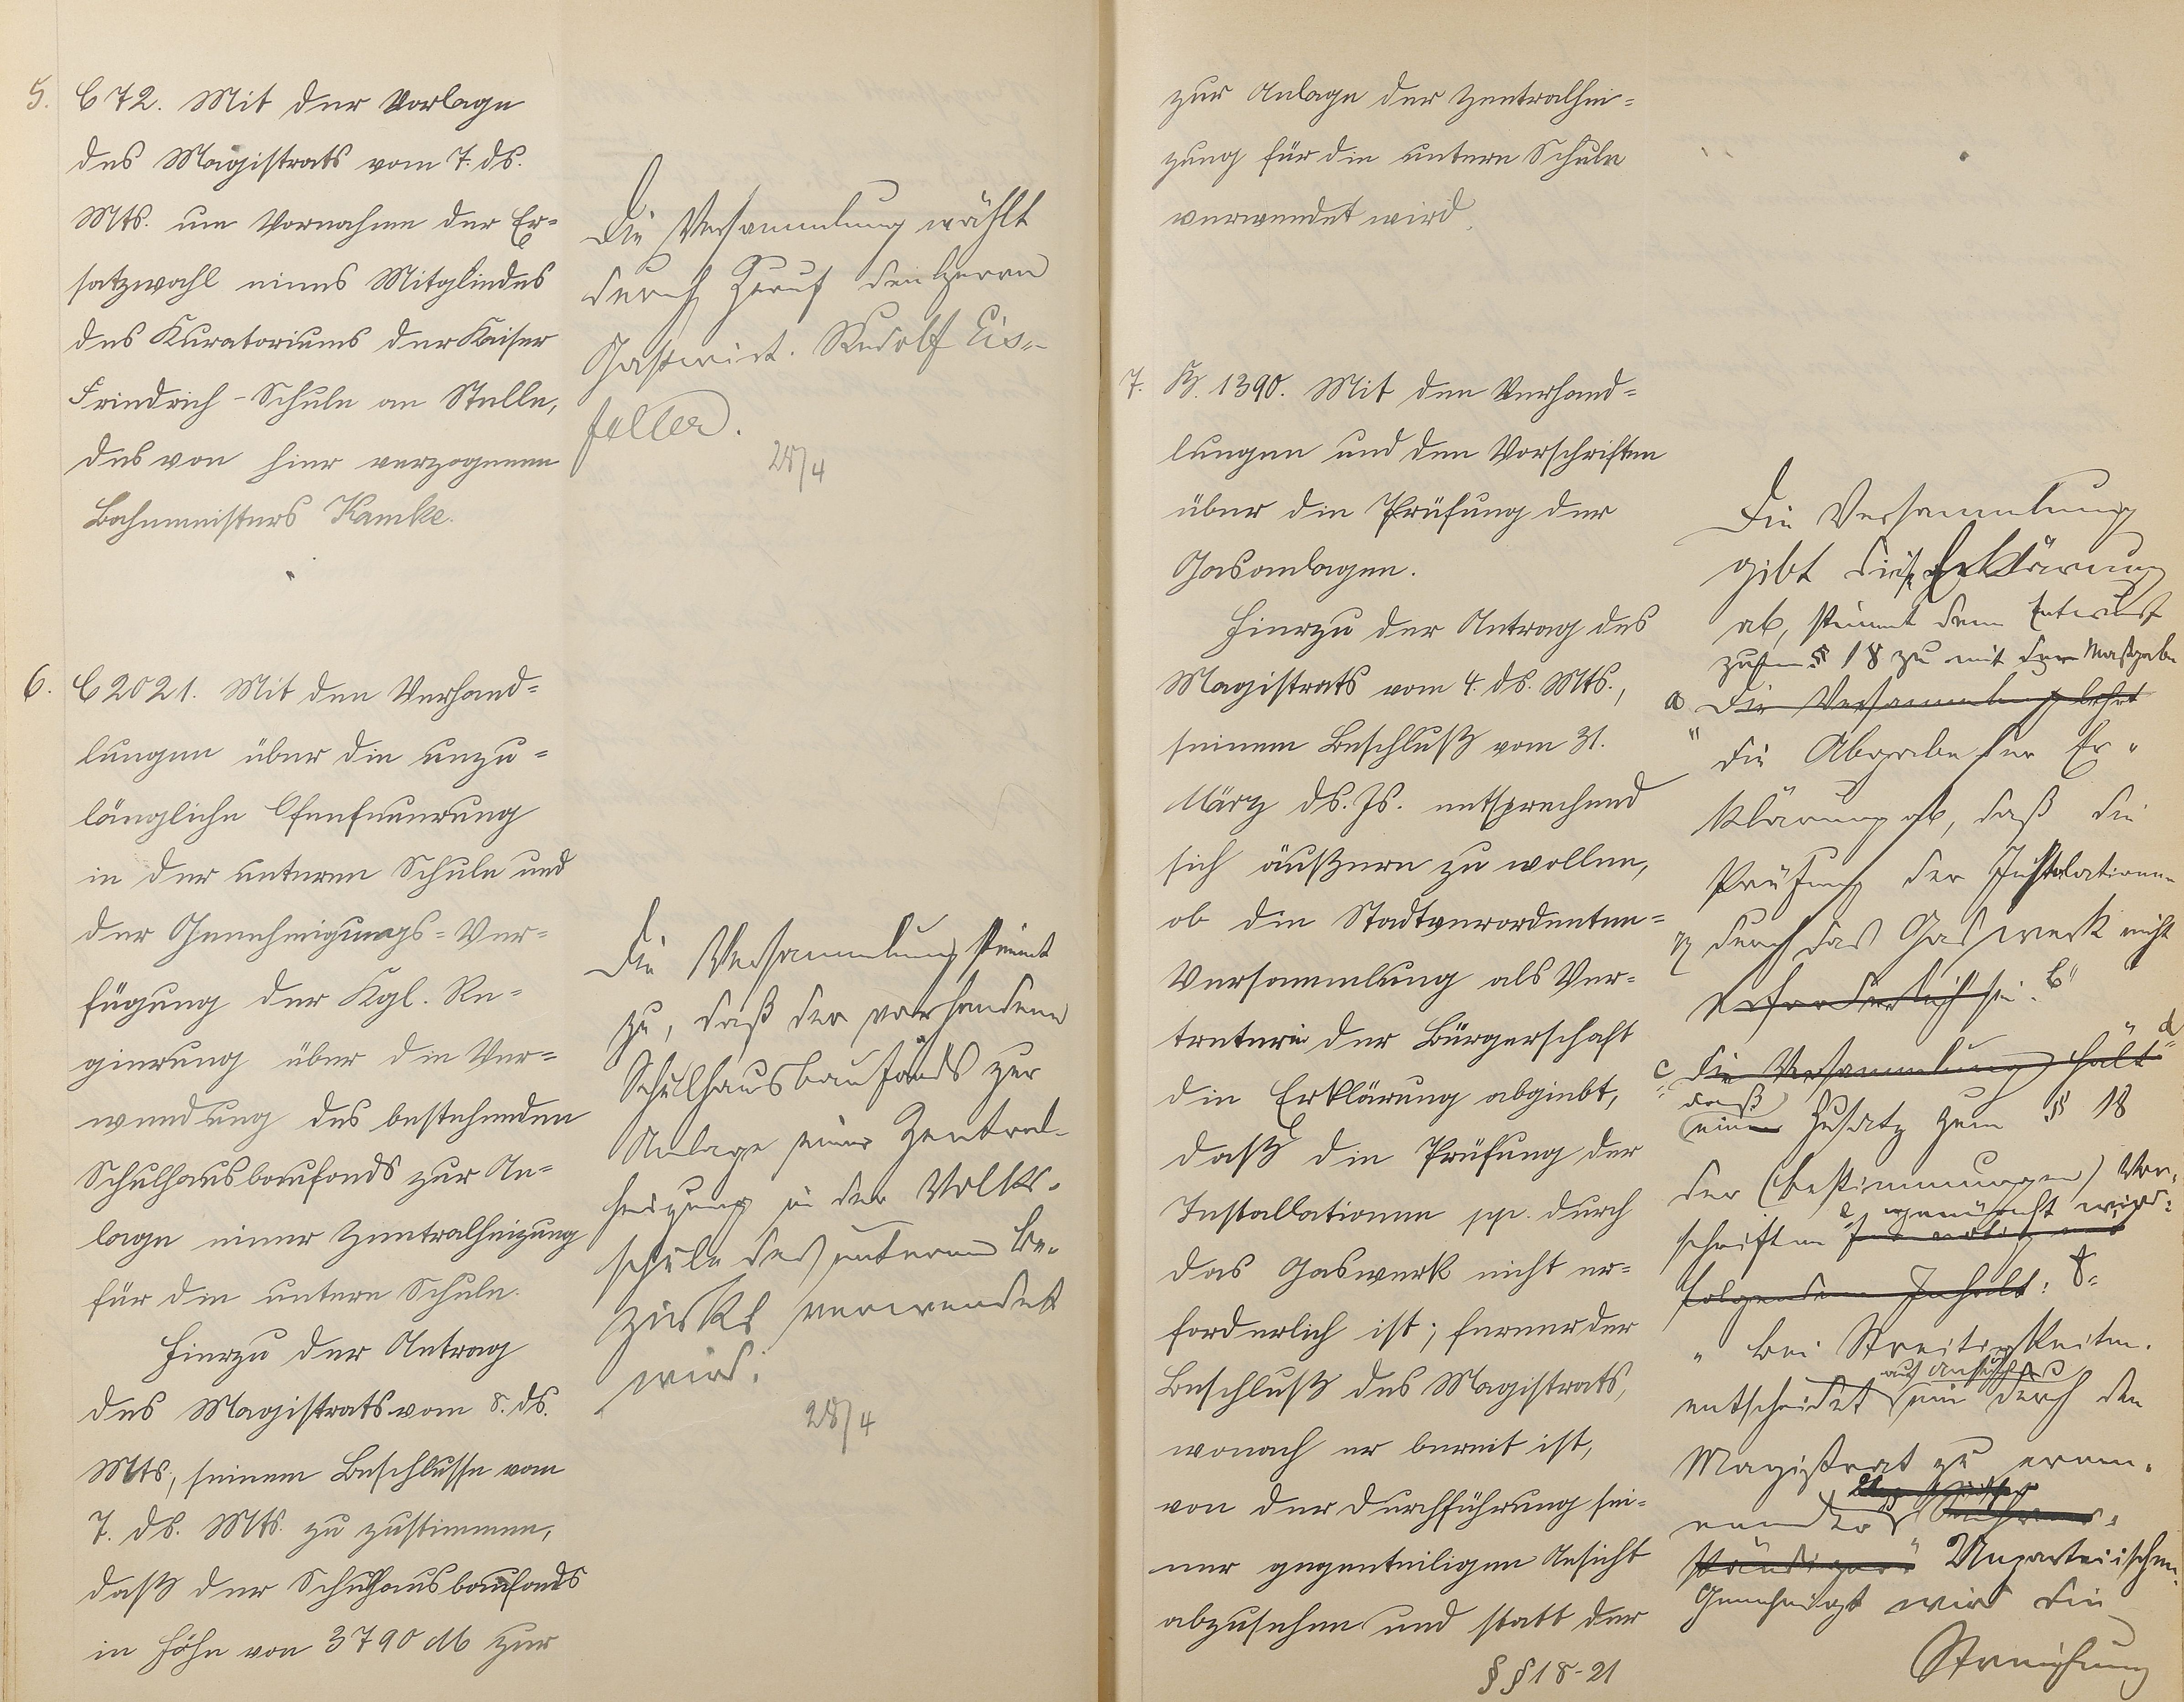 5. C 72. Mit der Vorlage
des Magistrats vom 7. ds.
Mts. um Vornahme der Er-
satzwahl eines Mitgliedes
des Kuratoriums der Kaiser
Friedrich-Schule an Stelle,
des von hier verzogenen
Bahnmeisters Kamke.
Die Versammlung wählt
durch Zuruf den Herrn
Gastwirt. Rudolf Eis-
feller.
28/4
6. C 2021. Mit den Verhand-
lungen über die unzu-
längliche Ofenfeuerung
in der unteren Schule und
der Genehmigungs-Ver-
fügung der Kgl. Re-
gierung über die Ver-
wendung des bestehenden
Schulhausbaufonds zur An-
lage einer Zentralheizung
für die untere Schule.
Hierzu der Antrag
des Magistrats vom 8. ds.
Mts., seinem Beschlusse vom
7. ds. Mts. zu zustimmen,
daß der Schulhausbaufonds
in Höhe von 3790 M zur
Die Versammlung stimmt
zu, daß der vorhandene
Schulhausbaufonds zur
Anlage einer Zentral-
heizung in der Volks-
schule des unteren Be-
zirks verwendet
wird.
28/4
zur Anlage der Zentralhei-
zung für die untere Schule
verwendet wird.
7. K. 1390. Mit den Verhand-
lungen und den Vorschriften
über die Prüfung der
Gasanlagen.
Hierzu der Antrag des
Magistrats vom 4. ds. Mts.,
seinem Beschluß vom 31.
März ds. Js. entsprechend
sich äußern zu wollen,
ob die Stadtverordneten-
Versammlung als Ver-
treterin der Bürgerschaft
die Erklärung abgiebt,
daß die Prüfung der
Installationen pp. durch
das Gaswerk nicht er-
forderlich ist; ferner der
Beschluß des Magistrats,
wonach er bereit ist,
von der Durchführung sei-
ner gegenteiligen Ansicht
abzusehen und statt der
§§ 18-21
Die Versammlung
gibt diese Erklärung
ab, stimmt dem Entwurf
zum § 18 zu mit der Maßgabe
a Die Versammlung lehnt
die Abgabe der Er-
klärung ab, daß die
Prüfung der Installationen
durch das Gaswerk nicht
erforderlich sei. b
c Die Versammlung hält d
daß
einen Zusatz zum § 18
der (Bestimmungen) Vor-
e gewünscht wird:
schriften für nötig mit
folgendem Inhalt: f
"Bei Streitigkeiten
auf Anrufen
entscheidet ein durch den
Magistrat zu ernen-
nender
Unparteiischen.
Genehmigt wird die
Streichung